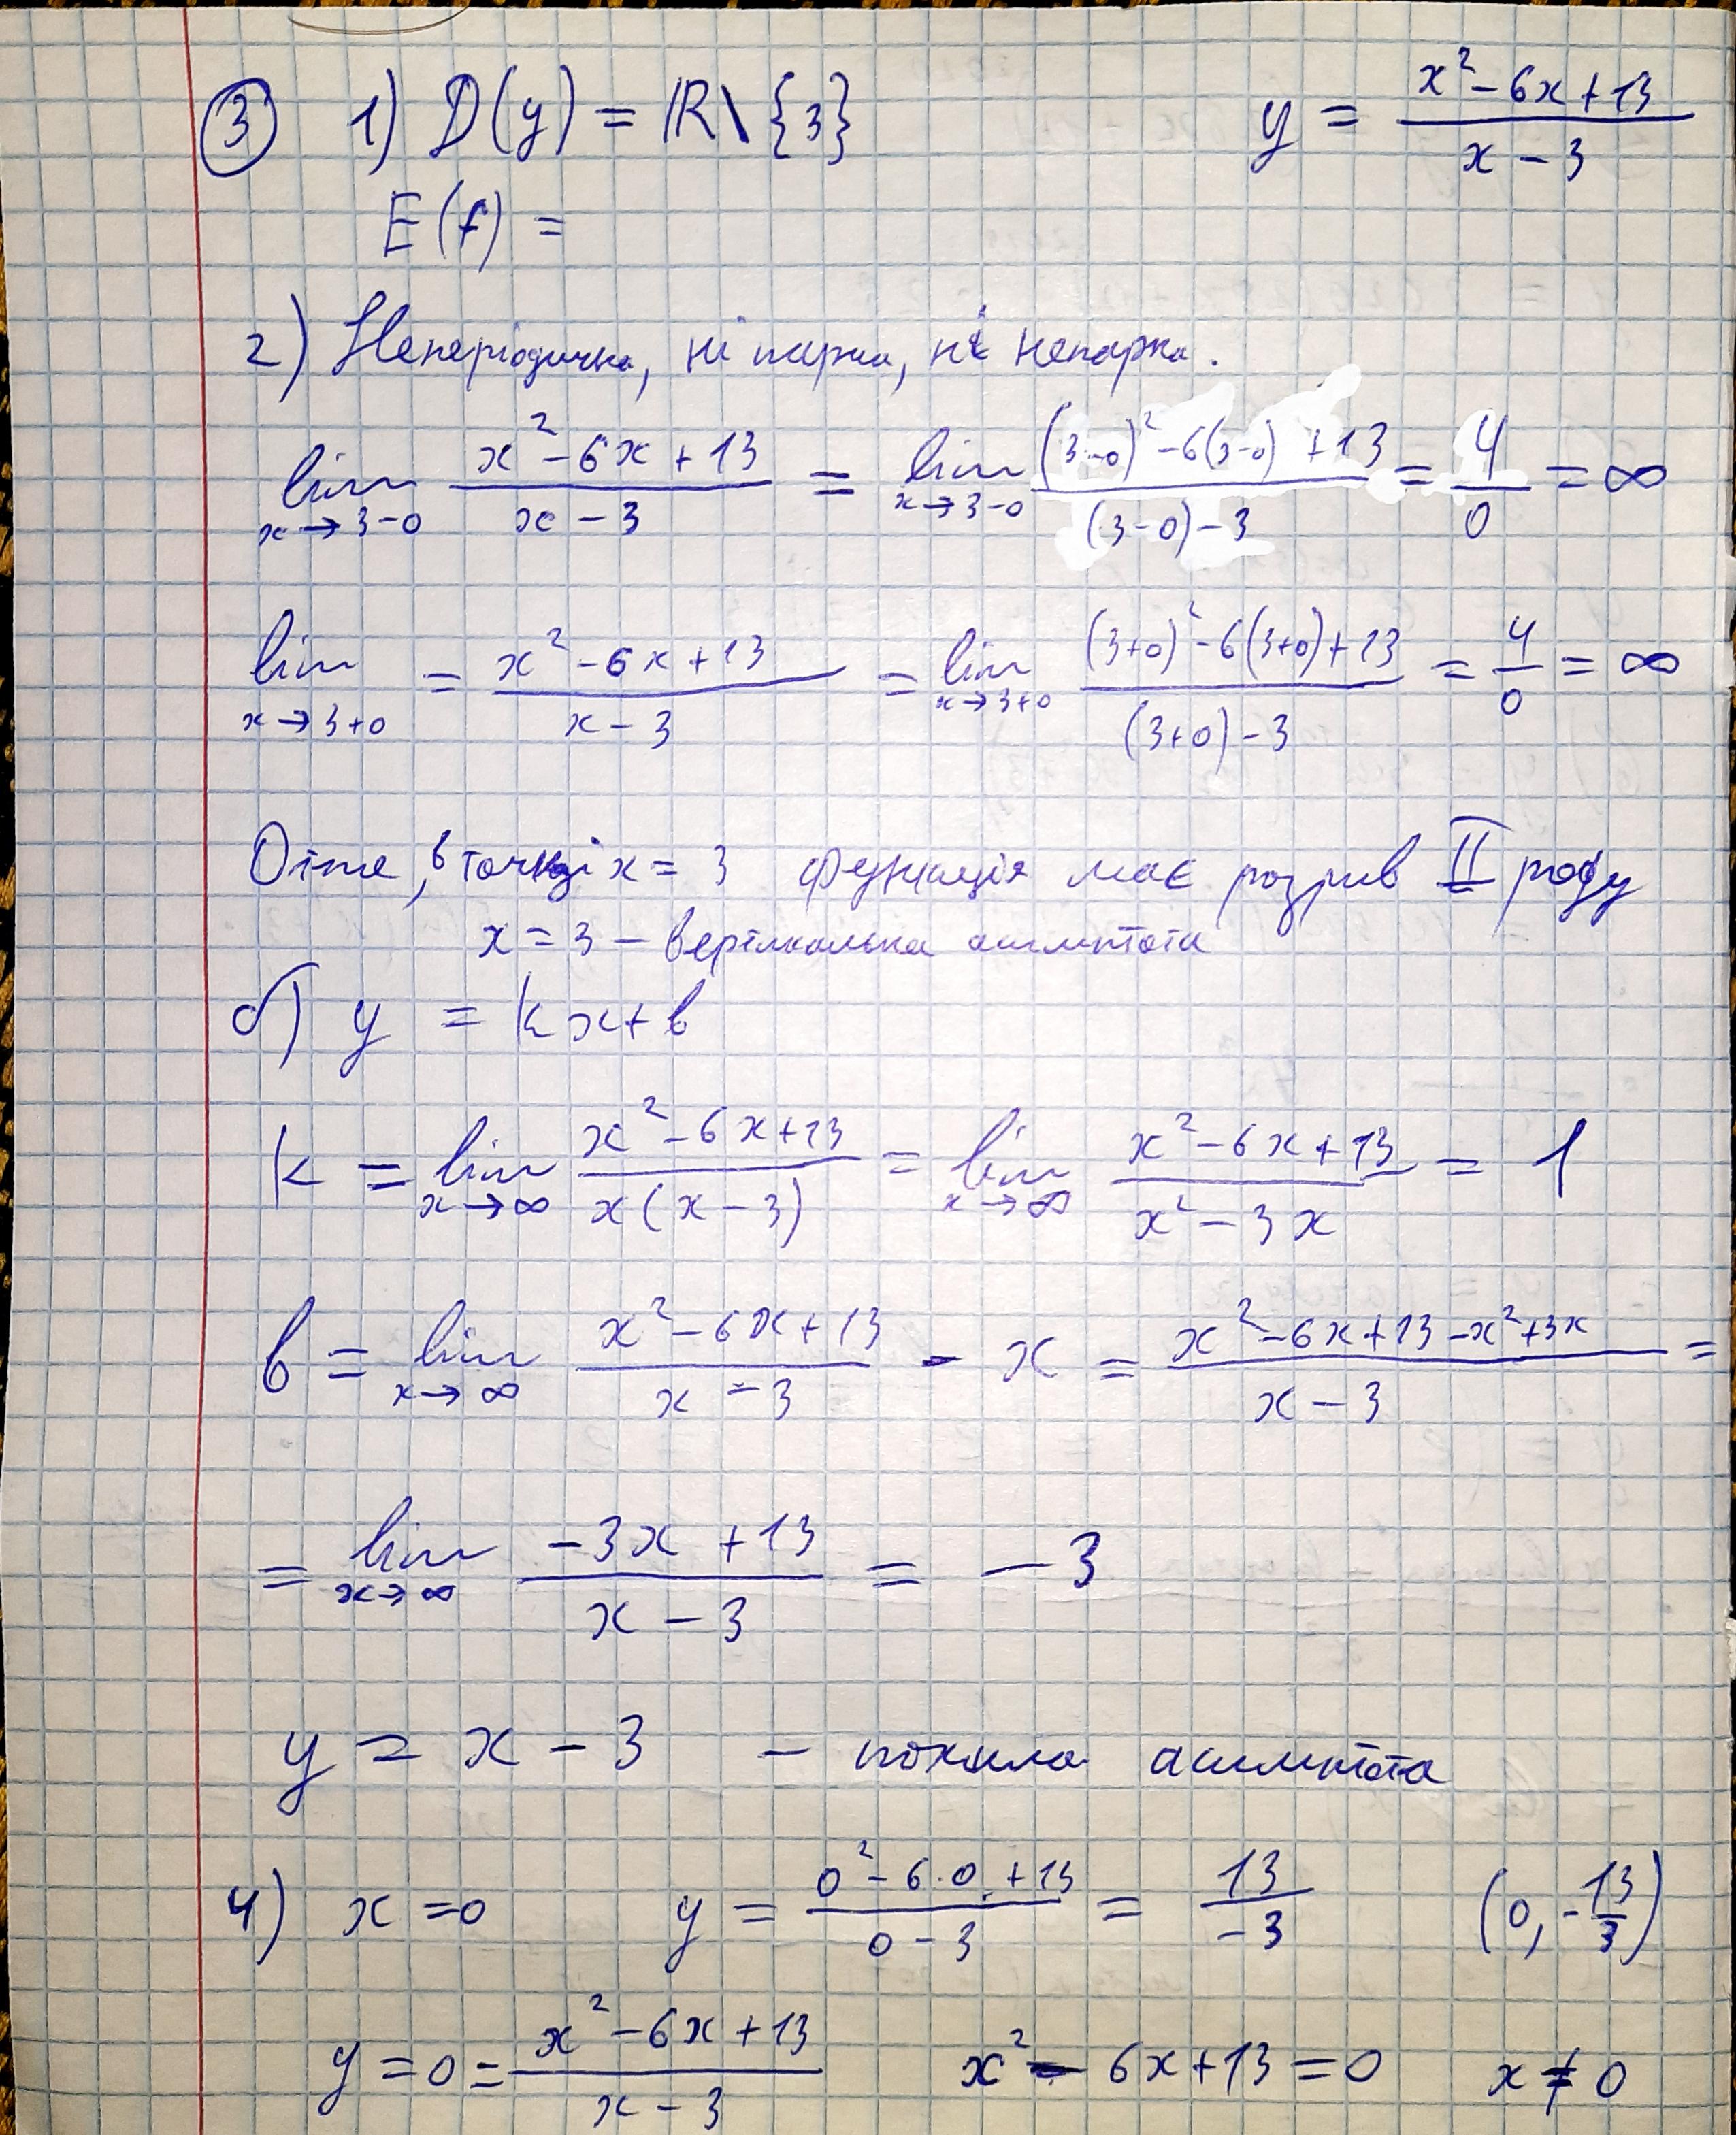 ③ 1) D(y) = ℝ\{3}   y = (x² - 6x + 13)/(x - 3)
E(f) =
2) Неперіодична, ні парна, ні непарна.
lim x→3-0 (x² - 6x + 13)/(x - 3) = lim x→3-0 ((3-0)² - 6(3-0) + 13)/((3-0) - 3) = 4/0 = ∞
lim x→3+0 = (x² - 6x + 13)/(x - 3) = lim x→3+0 ((3+0)² - 6(3+0) + 13)/((3+0) - 3) = 4/0 = ∞
Отже, в точці x = 3 функція має розрив II роду
x = 3 — вертикальна асимптота
б) y = kx + b
k = lim x→∞ (x² - 6x + 13)/(x(x - 3)) = lim x→∞ (x² - 6x + 13)/(x² - 3x) = 1
b = lim x→∞ (x² - 6x + 13)/(x - 3) - x = (x² - 6x + 13 - x² + 3x)/(x - 3) =
= lim x→∞ (-3x + 13)/(x - 3) = -3
y = x - 3 — похила асимптота
4) x = 0   y = (0² - 6·0 + 13)/(0 - 3) = 13/-3   (0, -13/3)
y = 0 = (x² - 6x + 13)/(x - 3)   x² - 6x + 13 = 0   x ≠ 0